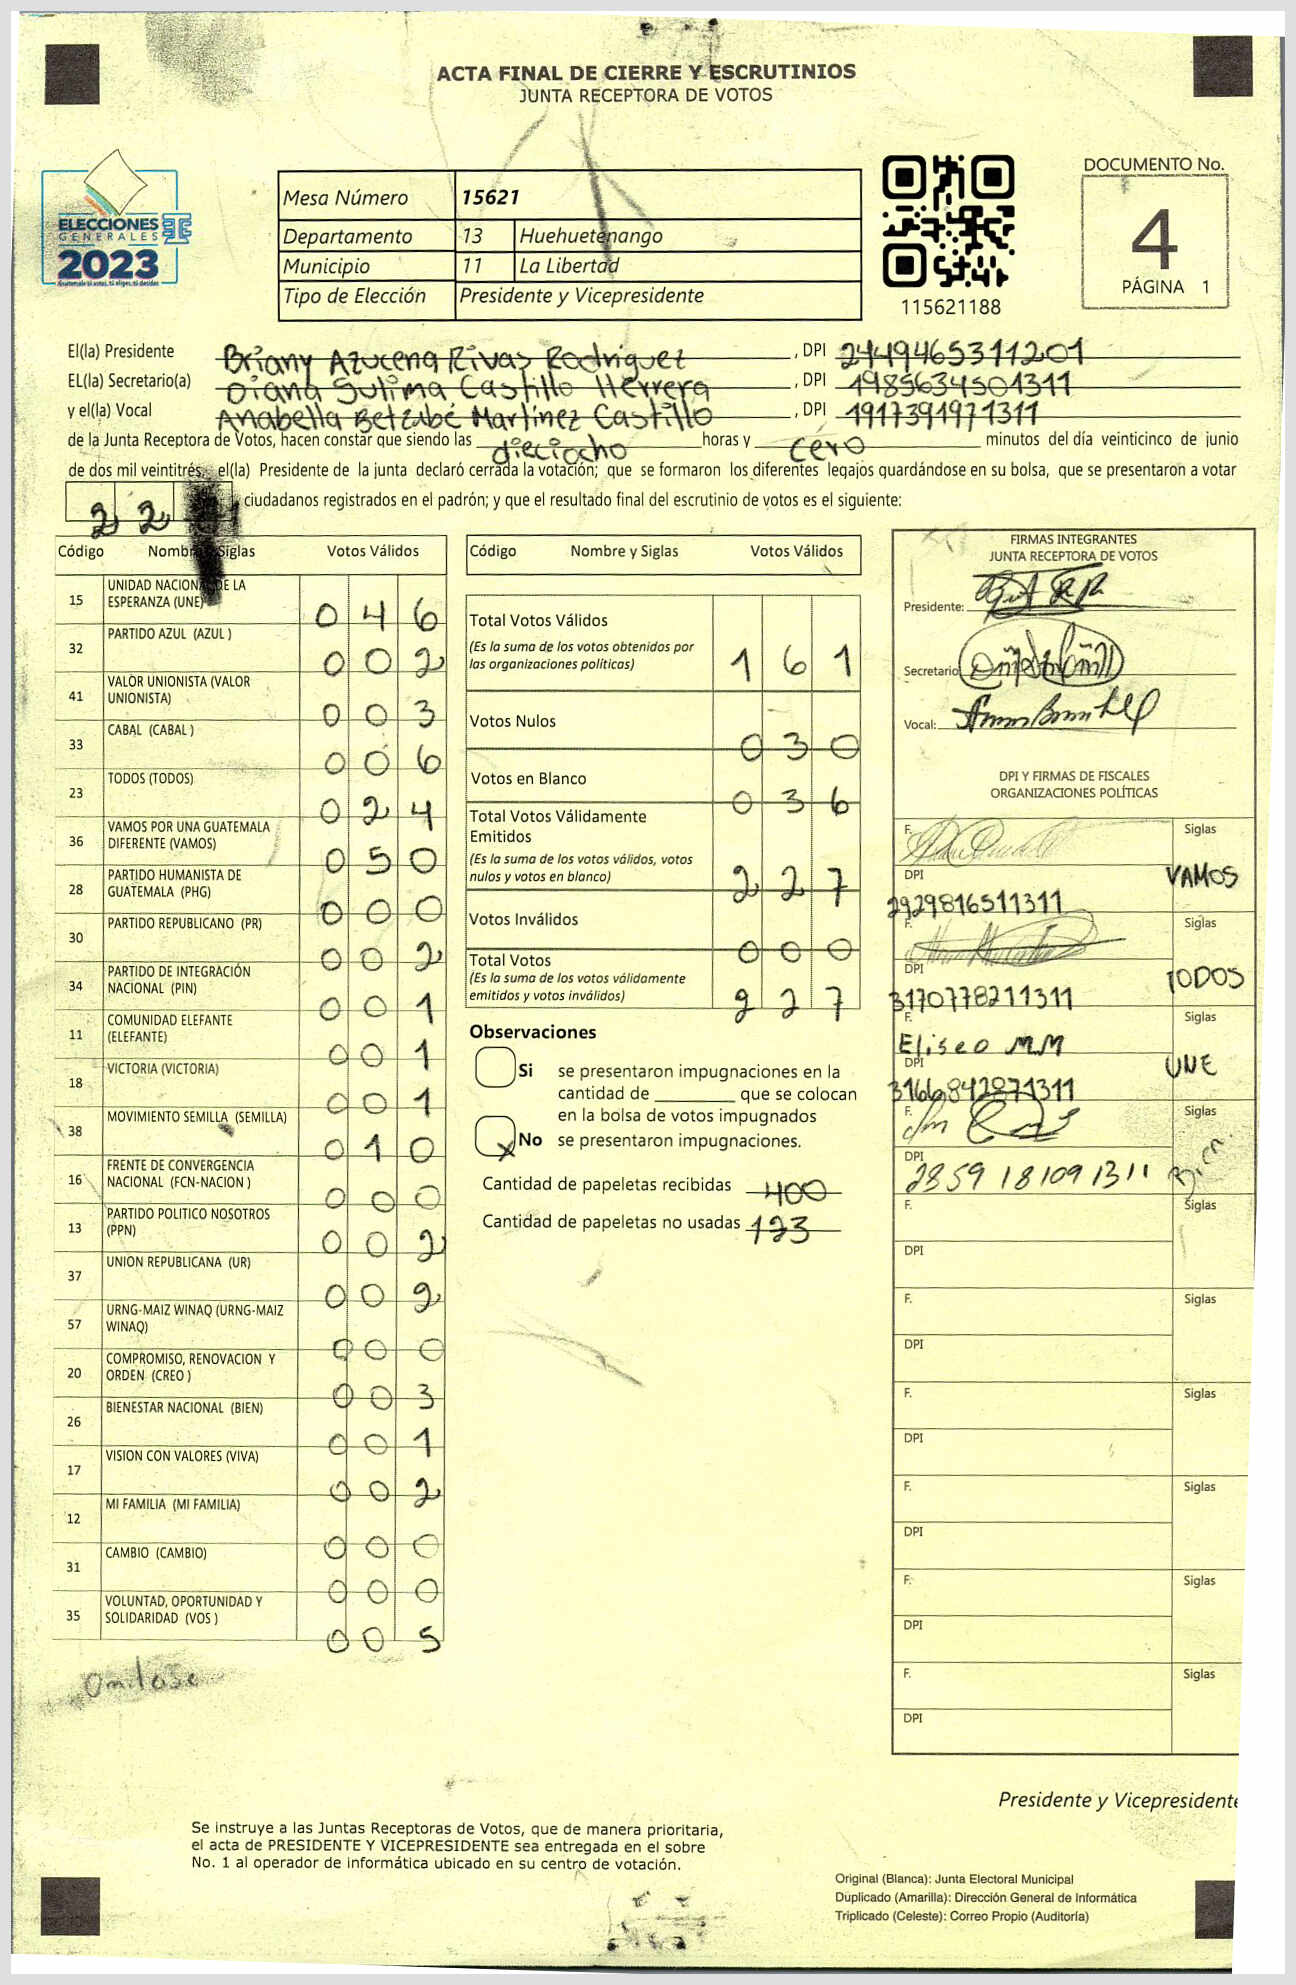 ACTA FINAL DE CIERRE Y ESCRUTINIOS
JUNTA RECEPTORA DE VOTOS
ELECCIONES
GENERALES
2023
Guatemala si votas, tú eliges, tú decides
Mesa Número 15621
Departamento 13 Huehuetenango
Municipio 11 La Libertad
Tipo de Elección Presidente y Vicepresidente
115621188
DOCUMENTO No.
4
PÁGINA 1
El(la) Presidente Briany Azucena Rivas Rodriguez , DPI 2449465311201
EL(la) Secretario(a) Diana Sulima Castillo Herrera , DPI 1985634501311
y el(la) Vocal Anabella Betzabé Martínez Castillo , DPI 1917391971311
de la Junta Receptora de Votos, hacen constar que siendo las dieciocho horas y cero minutos del día veinticinco de junio
de dos mil veintitrés, el(la) Presidente de la junta declaró cerrada la votación; que se formaron los diferentes legajos guardándose en su bolsa, que se presentaron a votar
2 2 ciudadanos registrados en el padrón; y que el resultado final del escrutinio de votos es el siguiente:
Código Nombre y Siglas Votos Válidos
15 UNIDAD NACIONAL DE LA ESPERANZA (UNE) 0 4 6
32 PARTIDO AZUL (AZUL ) 0 0 2
41 VALOR UNIONISTA (VALOR UNIONISTA) 0 0 3
33 CABAL (CABAL ) 0 0 6
23 TODOS (TODOS) 0 2 4
36 VAMOS POR UNA GUATEMALA DIFERENTE (VAMOS) 0 5 0
28 PARTIDO HUMANISTA DE GUATEMALA (PHG) 0 0 0
30 PARTIDO REPUBLICANO (PR) 0 0 2
34 PARTIDO DE INTEGRACIÓN NACIONAL (PIN) 0 0 1
11 COMUNIDAD ELEFANTE (ELEFANTE) 0 0 1
18 VICTORIA (VICTORIA) 0 0 1
38 MOVIMIENTO SEMILLA (SEMILLA) 0 1 0
16 FRENTE DE CONVERGENCIA NACIONAL (FCN-NACION ) 0 0 0
13 PARTIDO POLITICO NOSOTROS (PPN) 0 0 2
37 UNION REPUBLICANA (UR) 0 0 2
57 URNG-MAIZ WINAQ (URNG-MAIZ WINAQ) 0 0 0
20 COMPROMISO, RENOVACION Y ORDEN (CREO ) 0 0 3
26 BIENESTAR NACIONAL (BIEN) 0 0 1
17 VISION CON VALORES (VIVA) 0 0 2
12 MI FAMILIA (MI FAMILIA) 0 0 0
31 CAMBIO (CAMBIO) 0 0 0
35 VOLUNTAD, OPORTUNIDAD Y SOLIDARIDAD (VOS ) 0 0 5
Código Nombre y Siglas Votos Válidos
Total Votos Válidos 1 6 1
(Es la suma de los votos obtenidos por
las organizaciones políticas)
Votos Nulos 0 3 0
Votos en Blanco 0 3 6
Total Votos Válidamente
Emitidos 2 2 7
(Es la suma de los votos válidos, votos
nulos y votos en blanco)
Votos Inválidos 0 0 0
Total Votos 2 2 7
(Es la suma de los votos válidamente
emitidos y votos inválidos)
Observaciones
Si se presentaron impugnaciones en la
cantidad de ________ que se colocan
en la bolsa de votos impugnados
x No se presentaron impugnaciones.
Cantidad de papeletas recibidas 400
Cantidad de papeletas no usadas 173
FIRMAS INTEGRANTES
JUNTA RECEPTORA DE VOTOS
Presidente:
Secretario
Vocal:
DPI Y FIRMAS DE FISCALES
ORGANIZACIONES POLÍTICAS
F. Siglas
DPI VAMOS
2929816511311
F. Siglas
DPI TODOS
3170778211311
F. Siglas
Eliseo MM
DPI UNE
3166842871311
F. Siglas
DPI Bien.
2859 18109 1311
F. Siglas
DPI
F. Siglas
DPI
F. Siglas
DPI
F. Siglas
DPI
F. Siglas
DPI
F. Siglas
DPI
Presidente y Vicepresidente
Se instruye a las Juntas Receptoras de Votos, que de manera prioritaria,
el acta de PRESIDENTE Y VICEPRESIDENTE sea entregada en el sobre
No. 1 al operador de informática ubicado en su centro de votación.
Original (Blanca): Junta Electoral Municipal
Duplicado (Amarilla): Dirección General de Informática
Triplicado (Celeste): Correo Propio (Auditoría)